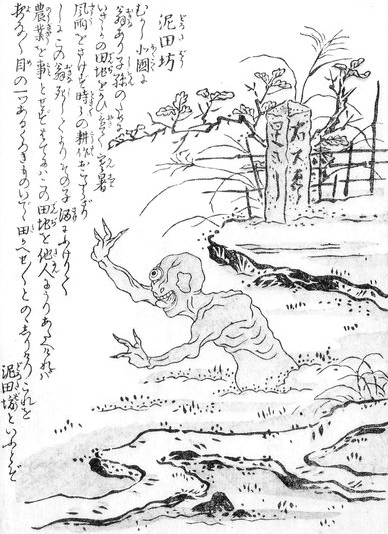 泥田坊
むかし北国に
翁あり子孫のために
いさゝかの田地をかひ置て寒暑
風雨をさけず時〻の耕作おこたらざり
しにこの翁死してよりその子酒にふけりて
農業を事とせずはてにはこの田地を他人にうりあたへければ
夜な〱目の一つあるくろきものいでて田をかへせ〱とのゝしりけりこれを
泥田坊といふとぞ